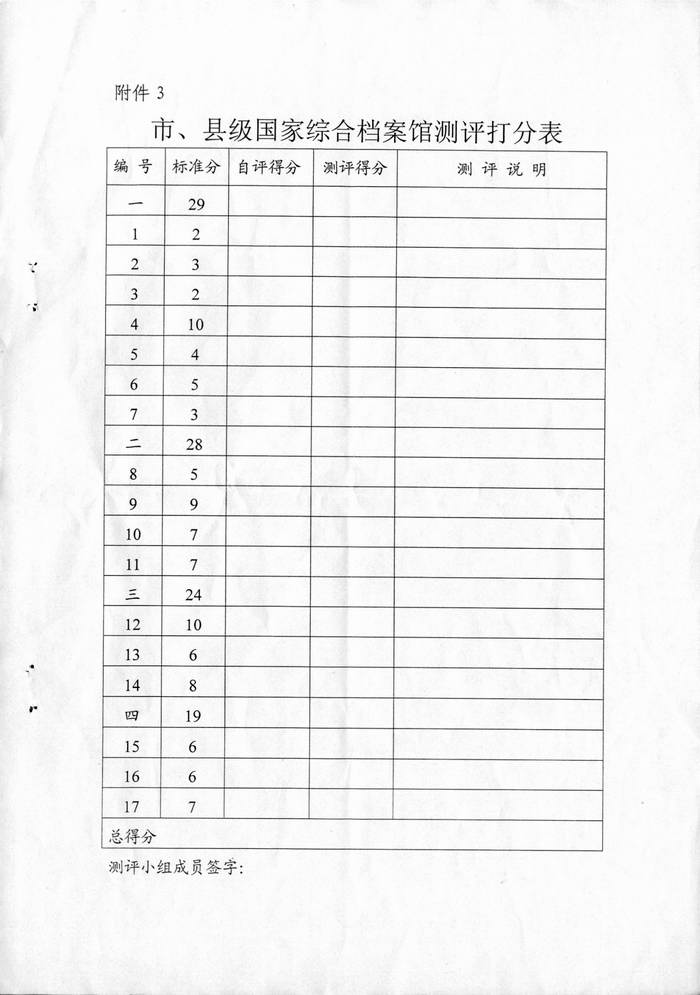 附件 3
市、县级国家综合档案馆测评打分表
编 号 标准分 自评得分 测评得分 测 评 说 明
一 29
1 2
2 3
3 2
4 10
5 4
6 5
7 3
二 28
8 5
9 9
10 7
11 7
三 24
12 10
13 6
14 8
四 19
15 6
16 6
17 7
总得分
测评小组成员签字: